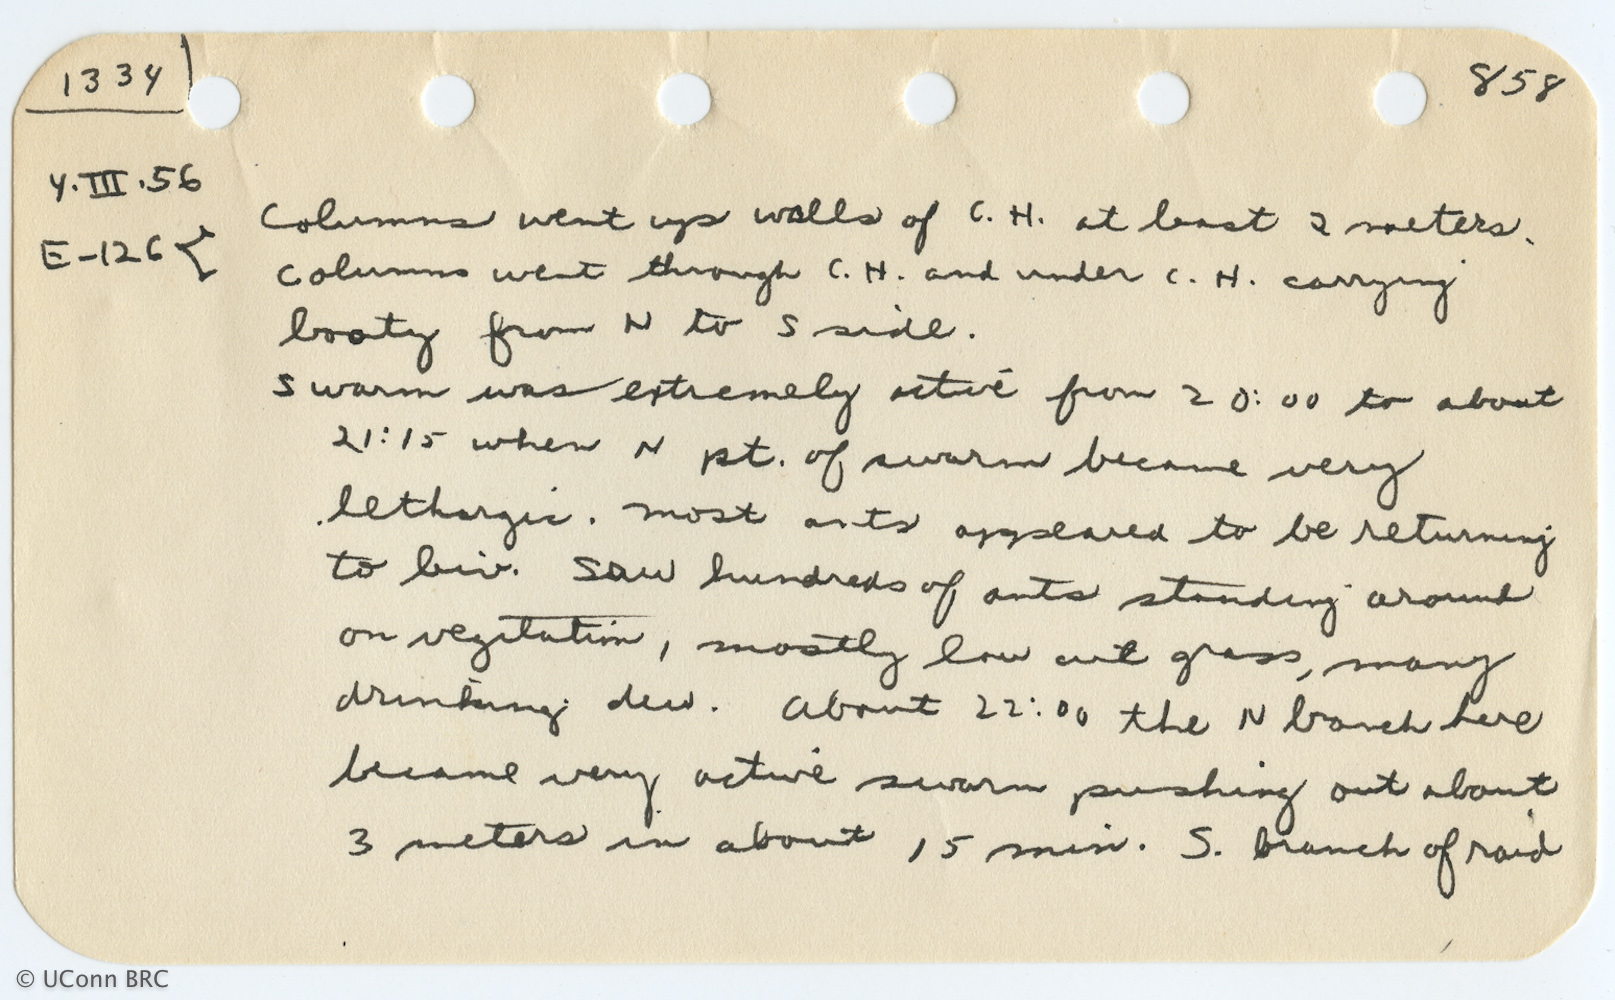 1334
858
4.III.56
E-126 {
Columns went up walls of C. H. at least 2 meters.
Columns went through C. H. and under C. H. carrying
booty from N to S side.
Swarm was extremely active from 20:00 to about
21:15 when N pt. of swarm became very
lethargic. Most ants appeared to be returning
to biv. Saw hundreds of ants standing around
on vegitation, mostly low cut grass, many
drinking dew. About 22:00 the N branch here
became very active swarm pushing out about
3 meters in about 15 min. S. branch of raid
© UConn BRC